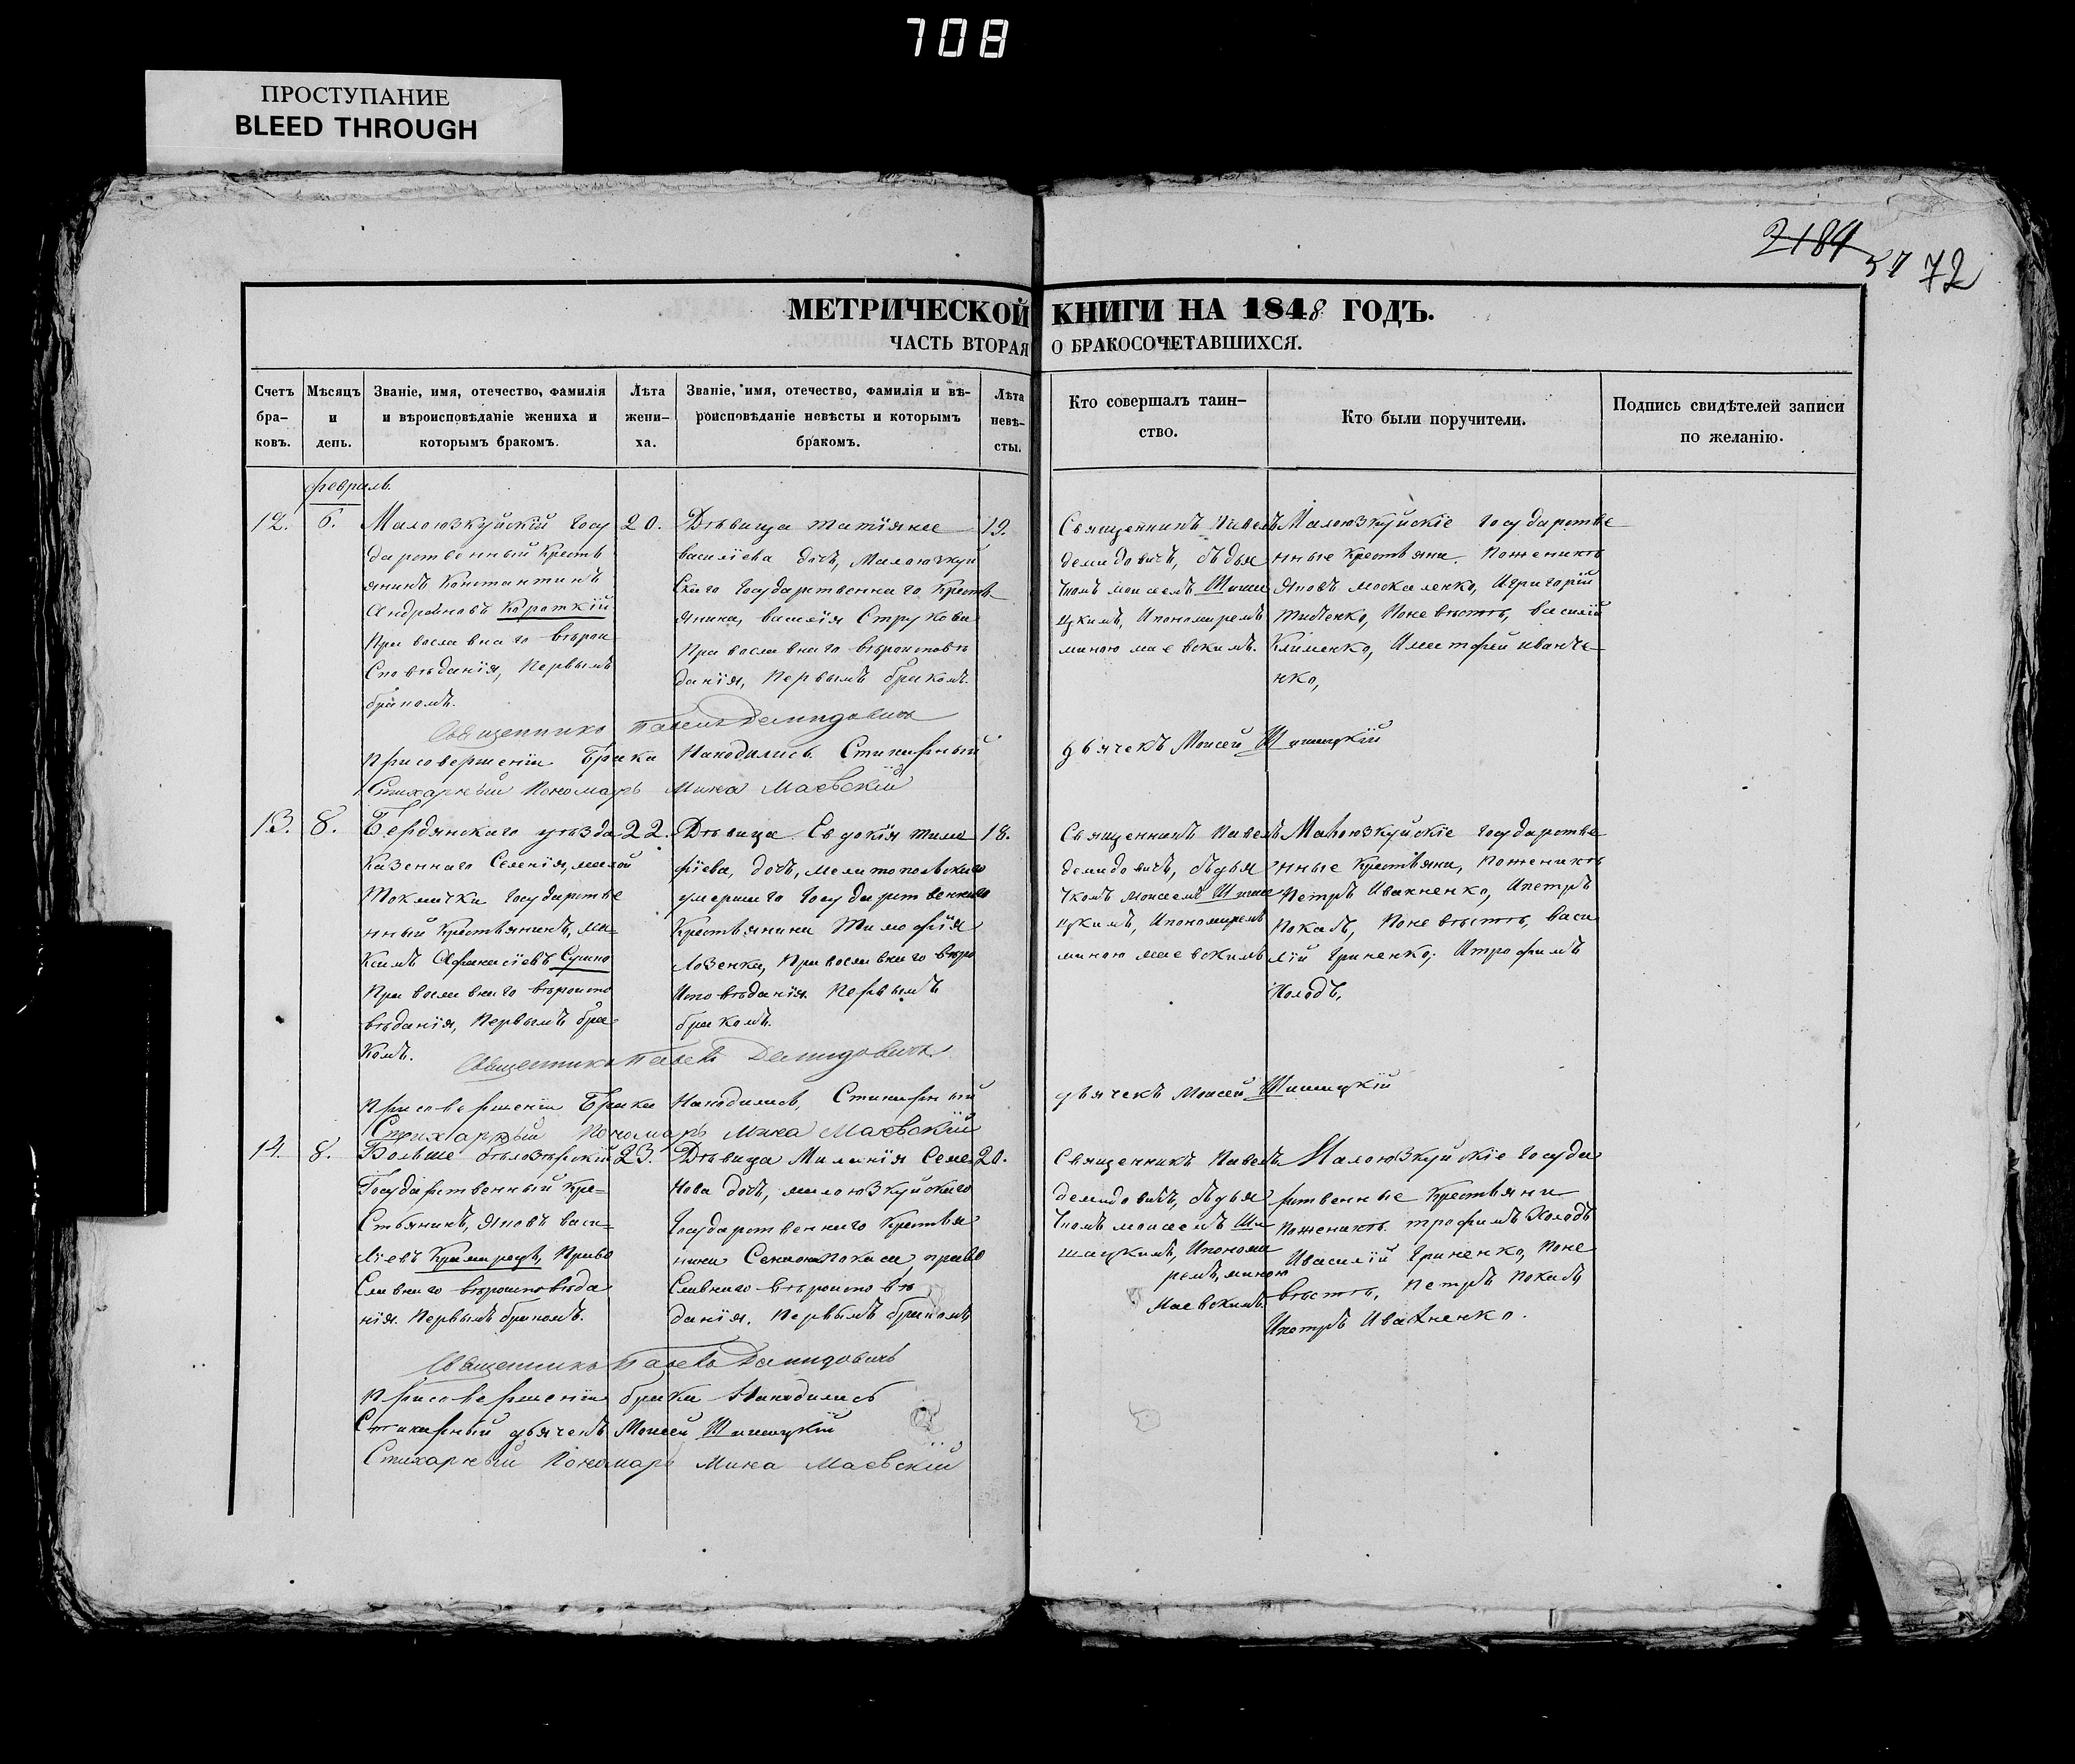 708
ПРОСТУПАНИЕ
BLEED THROUGH
2184
57 72
МЕТРИЧЕСКОЙ КНИГИ НА 1848 ГОДЪ.
ЧАСТЬ ВТОРАЯ О БРАКОСОЧЕТАВШИХСЯ.
Счетъ бра-
ковъ.
Мѣсяцъ
и
день.
Званіе, имя, отечество, фамилія
и вѣроисповѣданіе жениха и
которымъ бракомъ.
Лѣта
жени-
ха.
Званіе, имя, отечество, фамилія и вѣ-
роисповѣданіе невѣсты и которымъ
бракомъ.
Лѣта
невѣ-
сты.
Кто совершалъ таин-
ство.
Кто были поручители.
Подпись свидѣтелей записи
по желанію.
февраль.
12.
6.
Малоюзкуйскій Госу
дарственный Кресть
янинъ Константинъ
Андроновъ Короткій
Православнаго вѣрои
сповѣданія, Первымъ
бракомъ.
20.
Дѣвица татіяна
василіева дочь, Малоюзкуй
скаго Государственнаго Кресть
янина, василія Струкова
Православнаго вѣроисповѣ
данія, Первымъ бракомъ.
19.
Священникъ Павелъ
демидовичъ, съ дья
чкомъ моисеемъ Шиши
цкимъ, Ипономаремъ
миною маевскимъ.
Малоюзкуйскіе Государстве
нные Крестьяни. Поженихъ
Яковъ москаленко, Игригорій
Титенко, Поневѣстѣ, василій
Клименко, Иматфей иванче-
нко,
Священникъ Павелъ Демидовичъ
Присовершеніи Брака Находились Стихарный
дьячекъ Моисей Шишицкій
Стихарный Пономарь Мина Маевскій
13.
8.
Бердянскаго уѣзда
Казеннаго Селенія, малой
Токмачки Государстве
нный Крестьянинъ, Ма-
Ксимъ Афанасіевъ Супно
Православнаго вѣроиспо
вѣданія, Первымъ бра-
Комъ.
22.
Дѣвица Евдокія тимо
фіева, дочь, мелитопольскаго
умершаго Государственнаго
Крестьянина Тимофія
Лозенка, Православнаго вѣро
Исповѣданія Первымъ
бракомъ.
18.
Священникъ Павелъ
демидовичъ, съ дья
чкомъ моисеемъ Шиши
цкимъ, Ипономаремъ
миною маевскимъ
Малоюзкуйскіе Государстве
нные Крестьяни, Поженихъ
Петръ Ивахненко, Ипетръ
Покасъ, Поневѣстѣ, васи
лій Гриненко, Итрофимъ
Холодъ,
Священникъ Павелъ Демидовичъ
Присовершеніи Брака Находились, Стихарный
дьячекъ Моисей Шишицкій
Стихарный Пономарь Мина Маевскій
14.
8.
Больше бѣлозѣрскій
Государственный Кре=
Стьянинъ, Яковъ васи=
Ліевъ Крамарецъ, Право
Славнаго вѣроисповѣда
нія. Первымъ бракомъ.
23.
Дѣвица Миланія Семе-
Нова дочь, малоюзкуйскаго
Государственнаго Крестья
нина Семена Покаса, право
Славнаго вѣроисповѣ
данія. Первымъ бракомъ
20.
Священникъ Павелъ
демидовичъ, съ дья
чкомъ моисеемъ Ши
шацкимъ, Ипонома
ремъ, миною
Маевскимъ.
Малоюзкуйскіе Госуда
рственные Крестьяни
Поженихъ трофимъ Холодъ
Ивасилій Гриненко, Поне
вѣстѣ, Петръ Покасъ,
Ипетръ Ивахненко.
Священникъ Павелъ Демидовичъ
Присовершеніи брака Находились
Стихарный дьячекъ Моисей Шишицкій
Стихарный Пономарь Мина Маевскій